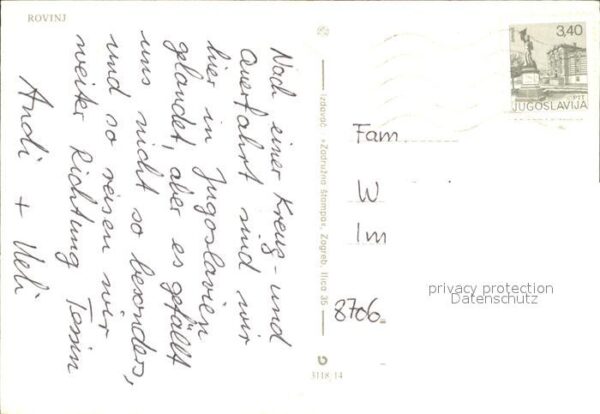 ROVINJ
Nach einer Kreuz- und
Querfahrt sind wir
hier in Jugoslavien
gelandet, aber es gefällt
uns nicht so besonders,
und so reisen wir
weiter Richtung Tessin
Andi + Ueli
Izdavač: »Zadružna štampa«, Zagreb, Ilica 35
3118/14
3,40
JUGOSLAVIJA
Fam.
W
Im
8706
privacy protection
Datenschutz